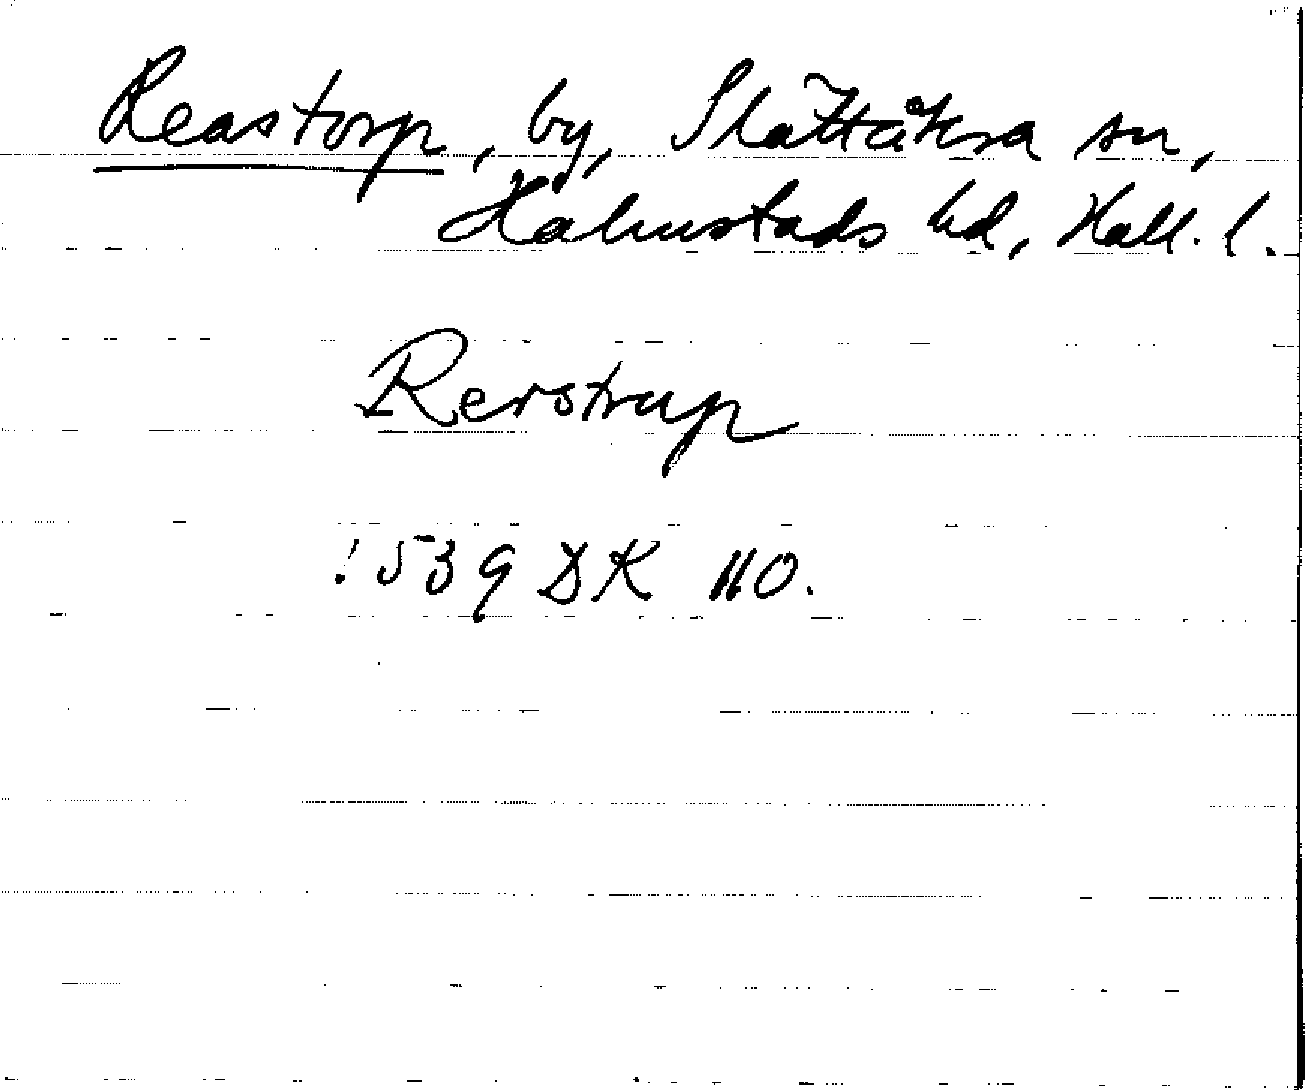 Reastorp, by, Slättåkra sn,
Halmstads hd, Hall. l.
Rerstrup
! 539 DK 110.